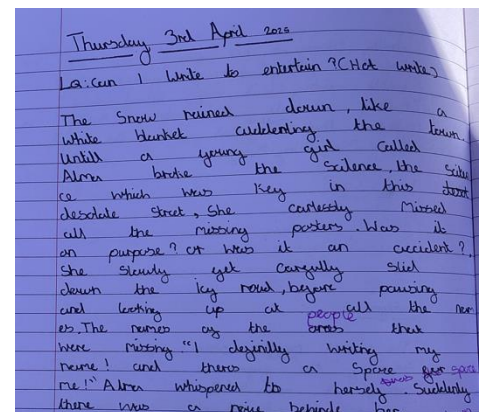 Thursday 3rd April 2025
LQ: Can I write to entertain? (Hot write)
The Snow rained down, like a
white blanket cuddenling the town.
Untill a young girl called
Alma broke the Scilence, the Scile
ce which was key in this
desolate street, She carlessly Missed
all the missing posters. Was it
on purpose? or was it an accident?.
She slowly yet cargully slid
down the icy road, begore pausing
and looking up at all the nam
es. The names og the people that
were missing. "I deginilly writing my
name! and theres a Space gor
me!" Alma whispered to herself. Suddenly
there was a noise behind her